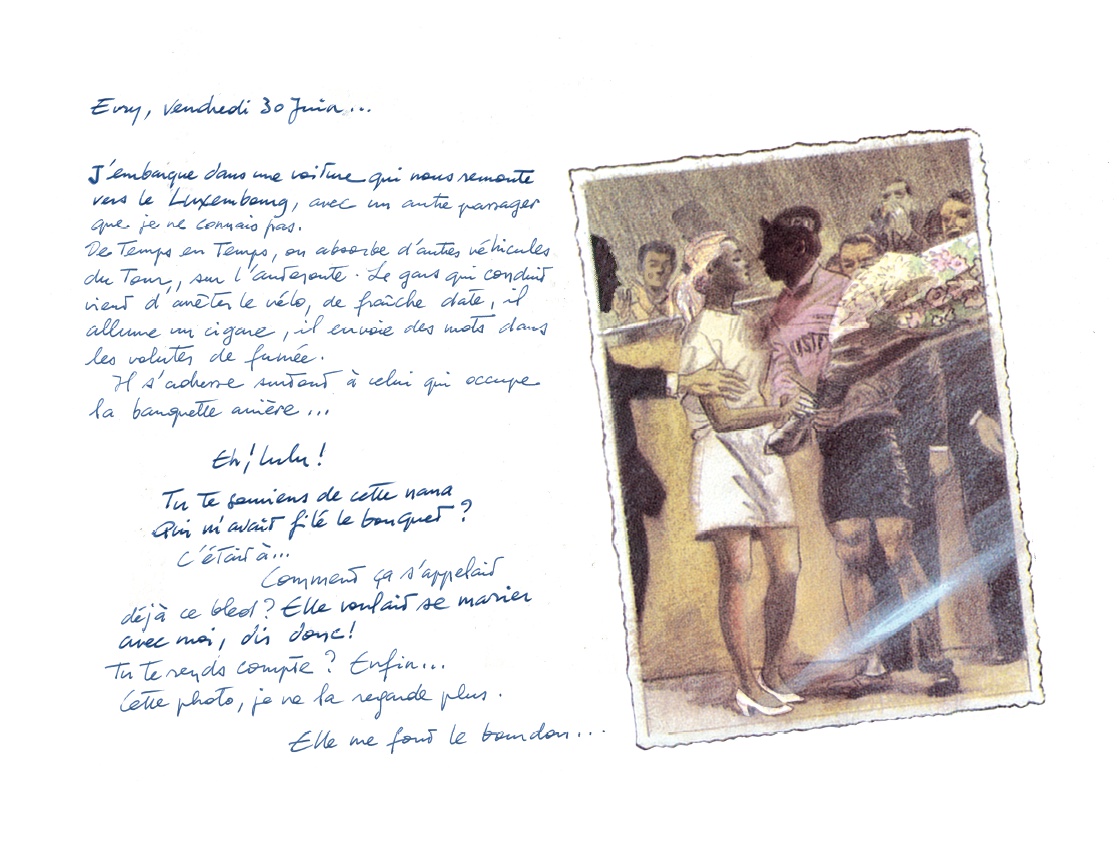 Evry, Vendredi 30 Juin...
J'embarque dans une voiture qui nous remonte
vers le Luxembourg, avec un autre passager
que je ne connais pas.
De Temps en Temps, on absorbe d'autres véhicules
du Tour, sur l'autoroute. Le gars qui conduit
vient d'arrêter le vélo, de fraîche date, il
allume un cigare, il envoie des mots dans
les volutes de fumée.
Il s'adresse surtout à celui qui occupe
la banquette arrière...
Eh! Lulu!
Tu te souviens de cette nana
Qui m'avait filé le bouquet?
C'était à...
Comment ça s'appelait
déjà ce bled? Elle voulait se marier
avec moi, dis donc!
Tu te rends compte? Enfin...
Cette photo, je ne la regarde plus.
Elle me fout le bourdon...